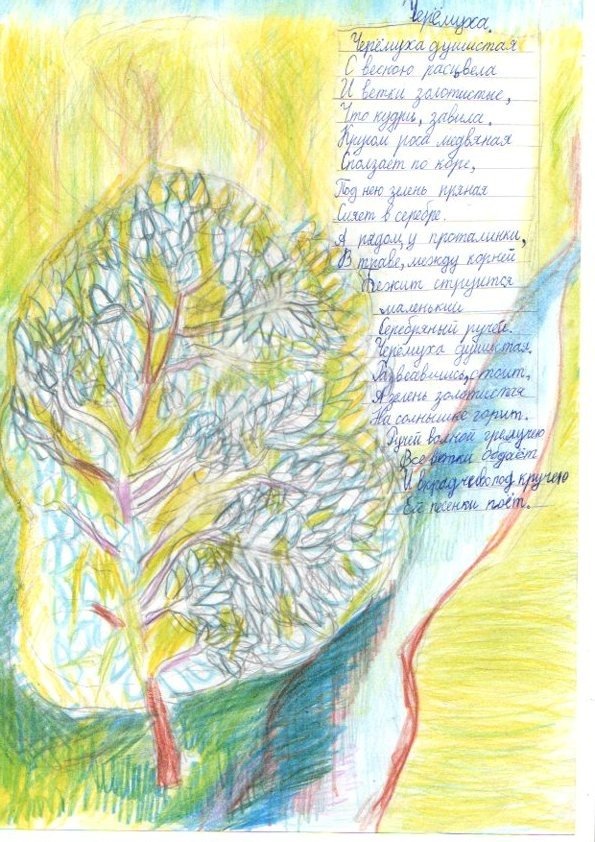 Черёмуха.
Черёмуха душистая
С весною расцвела
И ветки золотистые,
Что кудри, завила.
Кругом роса медвяная
Сползает по коре,
Под нею зелень пряная
Сияет в серебре.
А рядом, у проталинки,
В траве, между корней
Бежит струится
маленький
Серебряный ручей.
Черёмуха душистая.
Развесившись, стоит,
А зелень золотистая
На солнышке горит.
Ручей волной гремучею
Все ветки обдаёт
И вкрадчево под кручею
Ей песенки поёт.